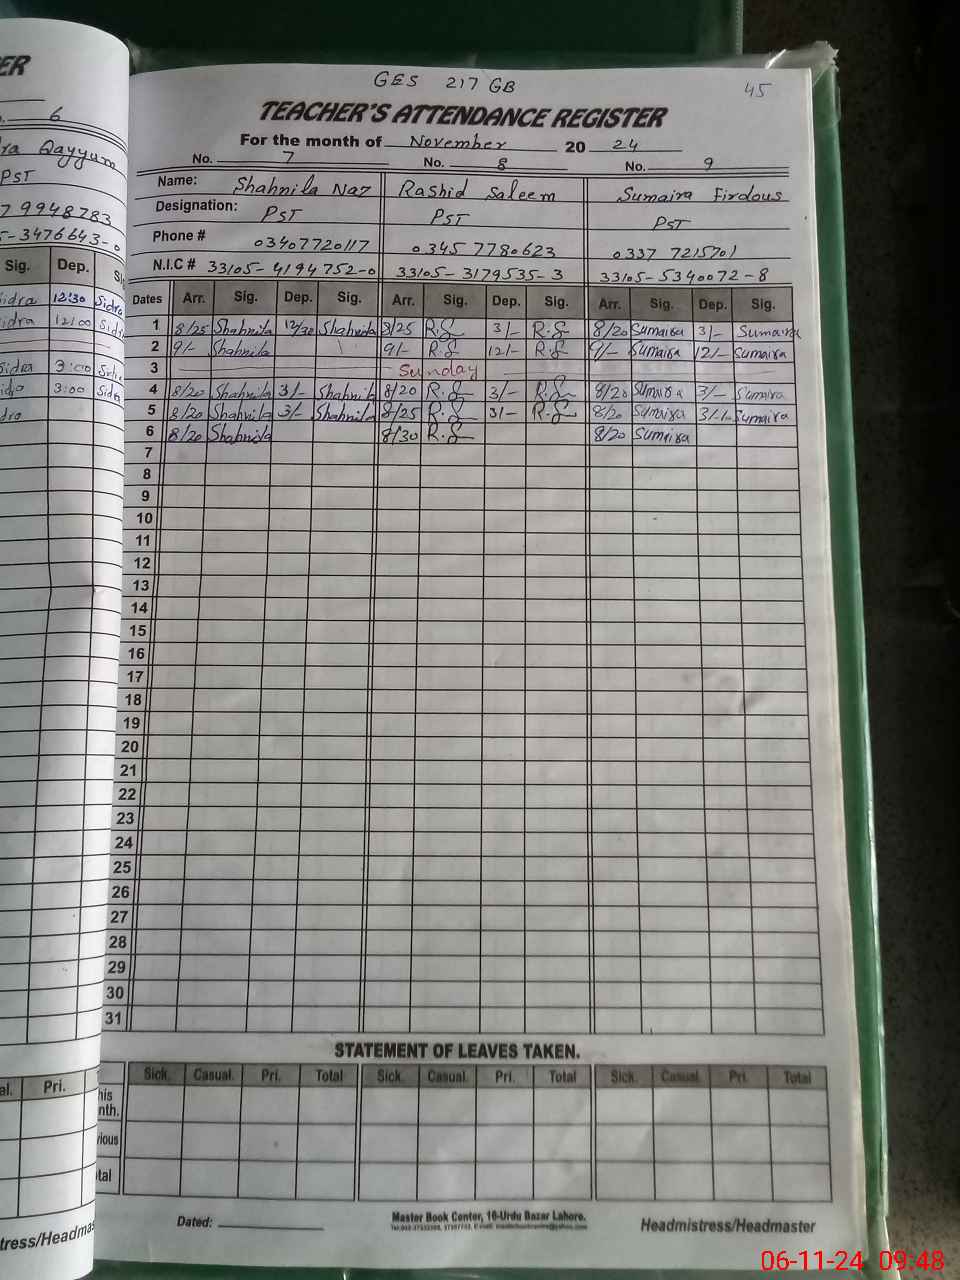 GES 217 GB
45
TEACHER'S ATTENDANCE REGISTER
For the month of November 20 24
No. 7 No. 8 No. 9
Name: Shahnila Naz Rashid Saleem Sumaira Firdous
Designation: PST PST PST
Phone # 03407720117 0345 7780623 0337 7215701
N.I.C # 33105-4194752-0 33105-3179535-3 33105-5340072-8
Dates Arr. Sig. Dep. Sig. Arr. Sig. Dep. Sig. Arr. Sig. Dep. Sig.
1 8/25 Shahnila 12/30 Shahnila 8/25 R.S 3/- R.S 8/20 Sumaira 3/- Sumaira
2 9/- Shahnila 9/- R.S 12/- R.S 9/- Sumaira 12/- Sumaira
3 Sunday
4 8/20 Shahnila 3/- Shahnila 8/20 R.S 3/- R.S 8/20 Sumaira 3/- Sumaira
5 8/20 Shahnila 3/- Shahnila 8/25 R.S 3/- R.S 8/20 Sumaira 3/- Sumaira
6 8/20 Shahnila 8/30 R.S 8/20 Sumaira
7
8
9
10
11
12
13
14
15
16
17
18
19
20
21
22
23
24
25
26
27
28
29
30
31
STATEMENT OF LEAVES TAKEN.
Sick. Casual. Pri. Total Sick. Casual. Pri. Total Sick. Casual. Pri. Total
his
nth.
vious
tal
Dated:
Master Book Center, 16-Urdu Bazar Lahore.
Headmistress/Headmaster
ER
6
ra Qayyum
PST
7 9948783
5-3476643-0
Sig. Dep.
Sidra 12:30 Sidra
Sidra 12:00 Sidra
Sidra 3:00
3:00 Sidra
al. Pri.
tress/Headmas
06-11-24 09:48